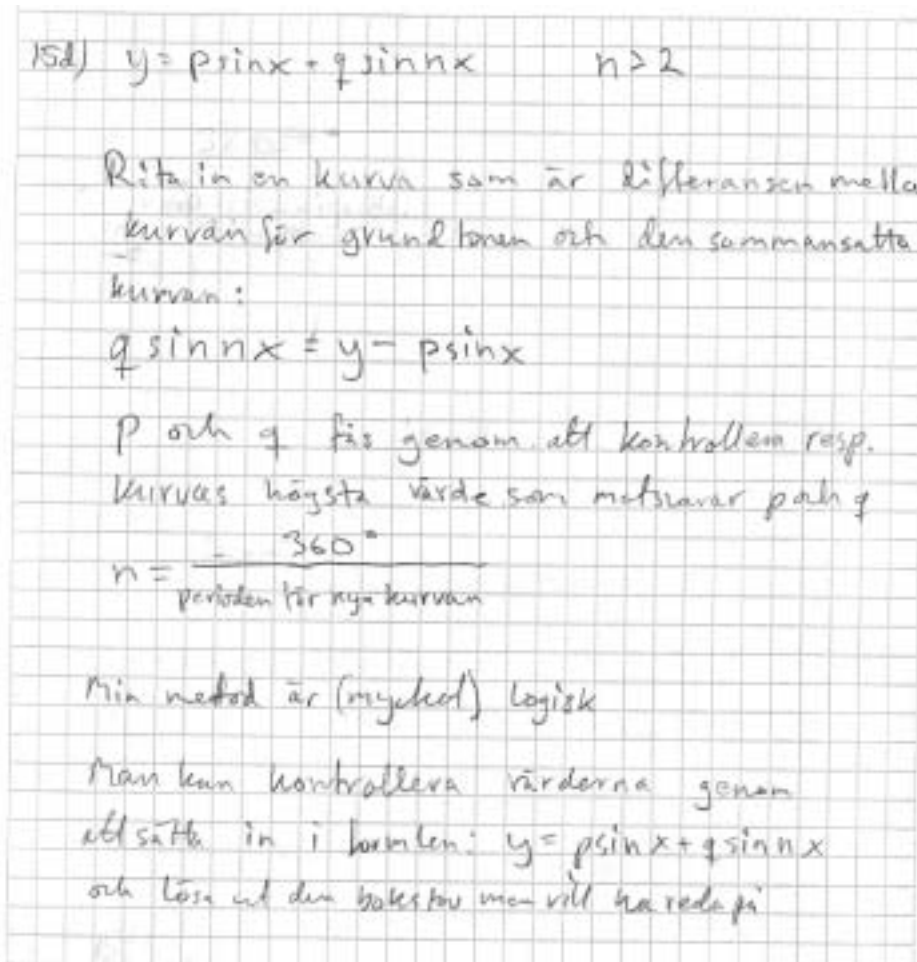 15d) y = psinx + q sinnx n≥2
Rita in en kurva som är differansen mella
kurvan för grundtonen och den sammansatta
kurvan:
q sinnx = y - psinx
p och q fås genom att kontrollera resp.
kurvas högsta värde som motsvarar p och q
n = 360°
perioden för nya kurvan
Min metod är (mycket) logisk
Man kan kontrollera värderna genom
att sätta in i formlen: y = psinx + q sinnx
och lösa ut den bokstav man vill ha reda på